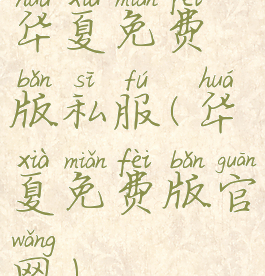 huá xià miǎn fèi
华夏免费
bǎn sī fú huá
版私服(华
xià miǎn fèi bǎn guān
夏免费版官
wǎng
网)